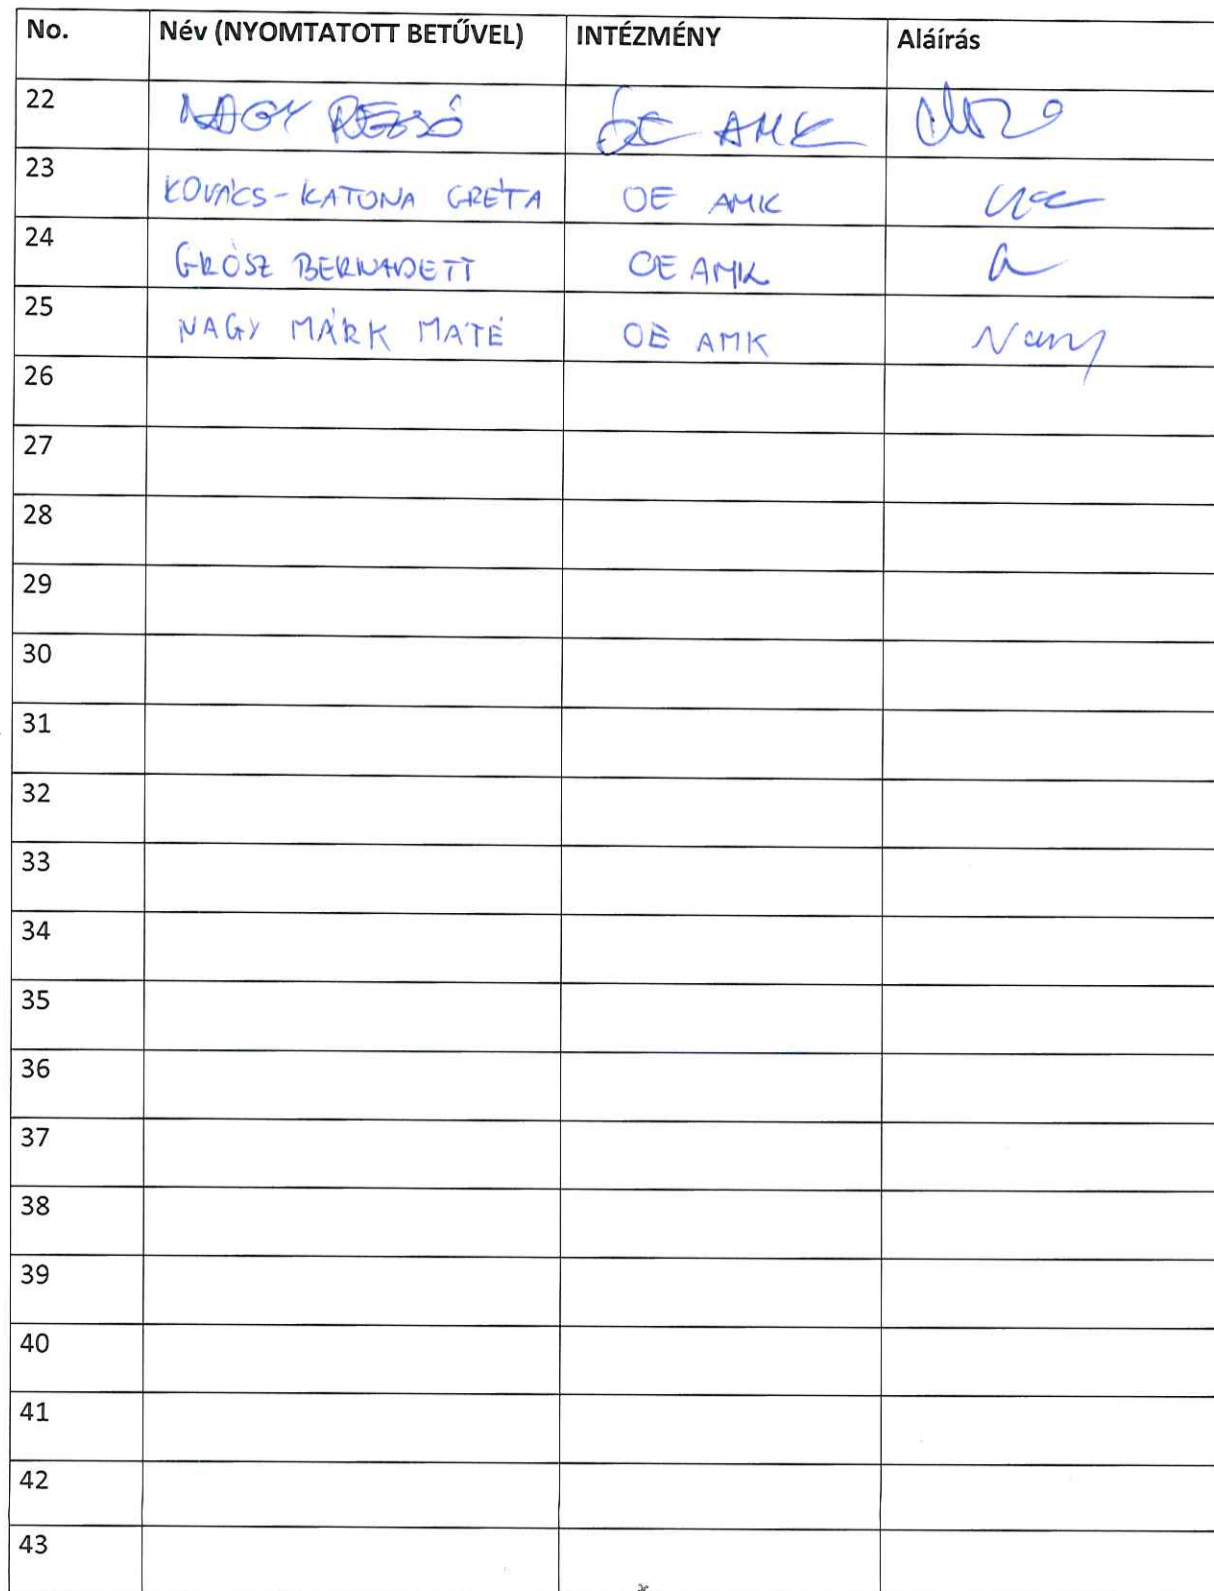 No. Név (NYOMTATOTT BETŰVEL) INTÉZMÉNY Aláírás
22 NAGY REZSŐ ÓE AMK
23 KOVÁCS-KATONA GRÉTA OE AMK
24 GRÓSZ BERNADETT OE AMK
25 NAGY MÁRK MÁTÉ OE AMK
26
27
28
29
30
31
32
33
34
35
36
37
38
39
40
41
42
43